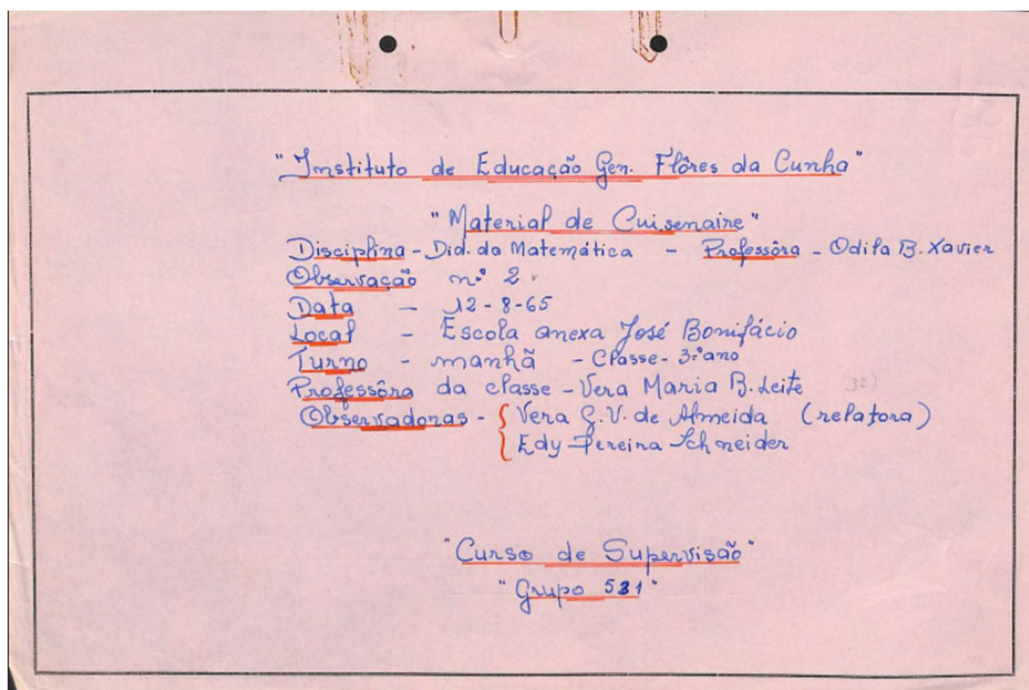 "Instituto de Educação Gen. Flôres da Cunha"
"Material de Cuisenaire"
Disciplina - Did. da Matemática - Professôra - Odila B. Xavier
Observação nº 2
Data - 12-8-65
Local - Escola anexa José Bonifácio
Turno - manhã - Classe - 3º ano
Professôra da classe - Vera Maria B. Leite
Observadoras - { Vera G. V. de Almeida (relatora)
Edy Pereira Schneider
"Curso de Supervisão"
"Grupo 531"